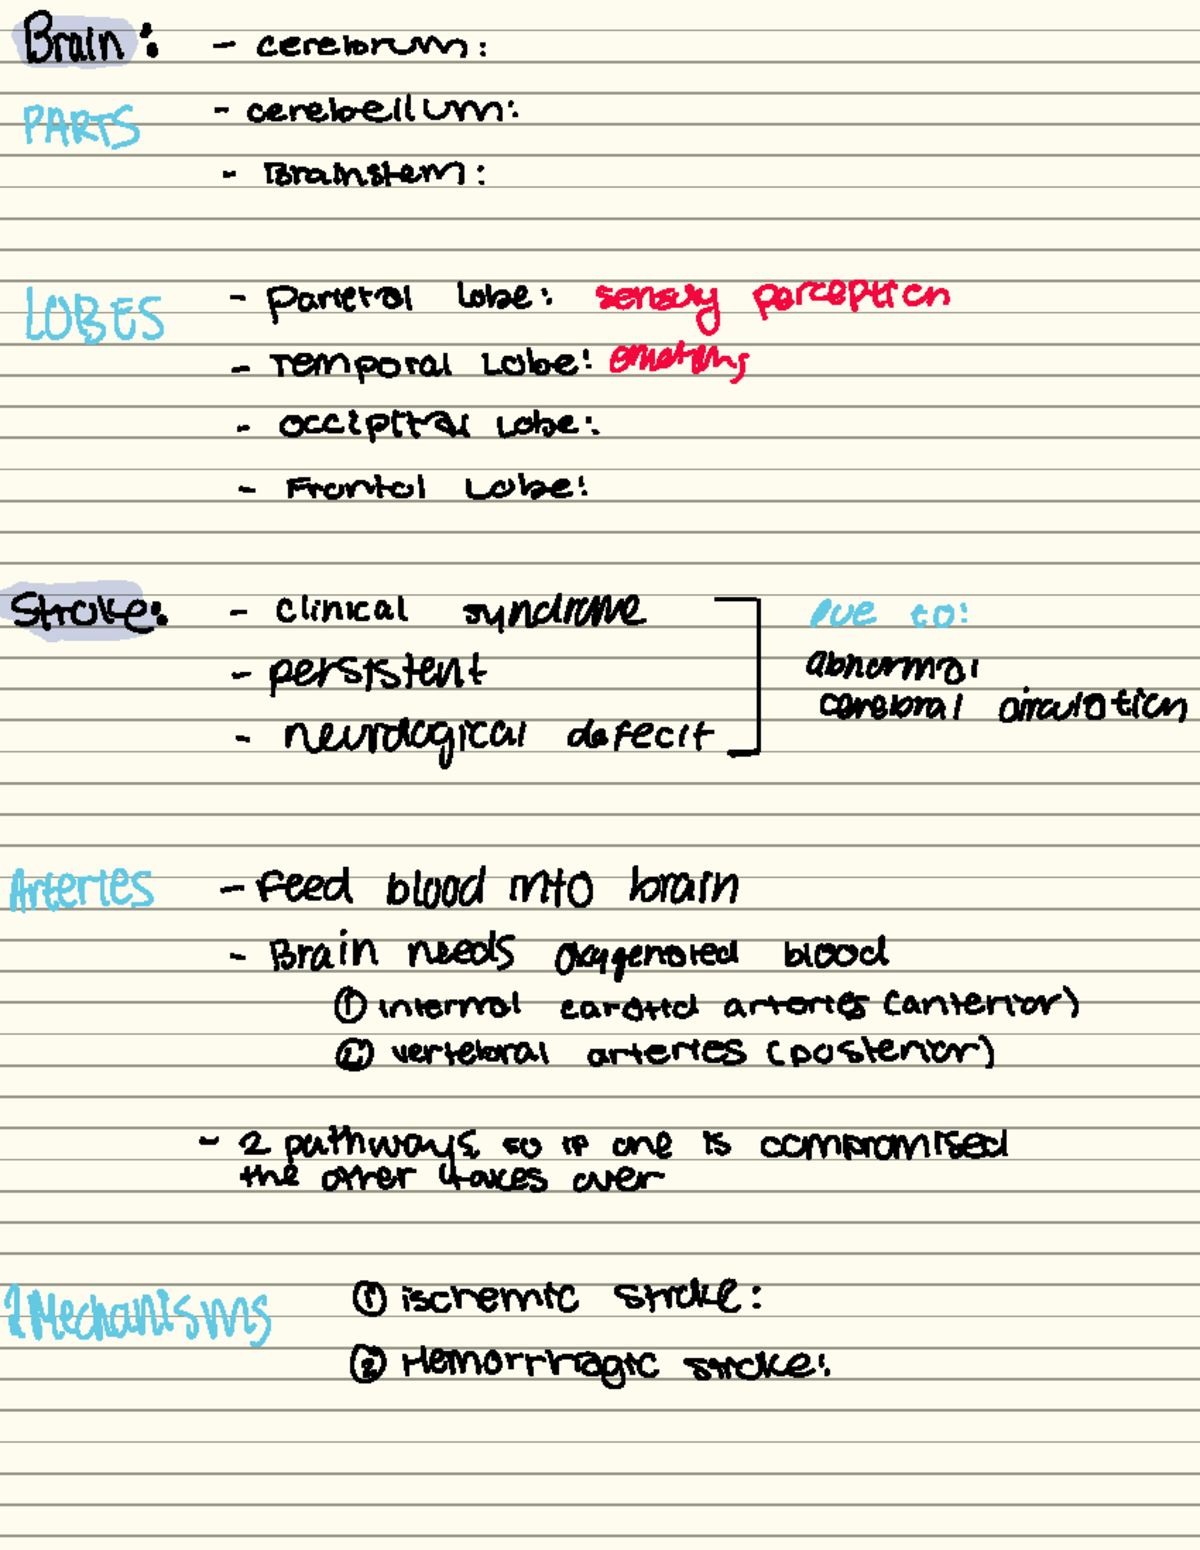 Brain: - cerebrum:
PARTS - cerebellum:
- Brainstem:
LOBES - parietal lobe: sensory perception
- Temporal Lobe: emotions
- occipital Lobe:
- Frontal Lobe:
Stroke: - clinical syndrome due to:
- persistent abnormal
cerebral circulation
- neurological defecit
Arteries - feed blood into brain
- Brain needs oxygenated blood
① internal carotid arteries (anterior)
② vertebral arteries (posterior)
- 2 pathways so if one is compromised
the other takes over
2 Mechanisms ① ischemic stroke:
② Hemorrhagic stroke: